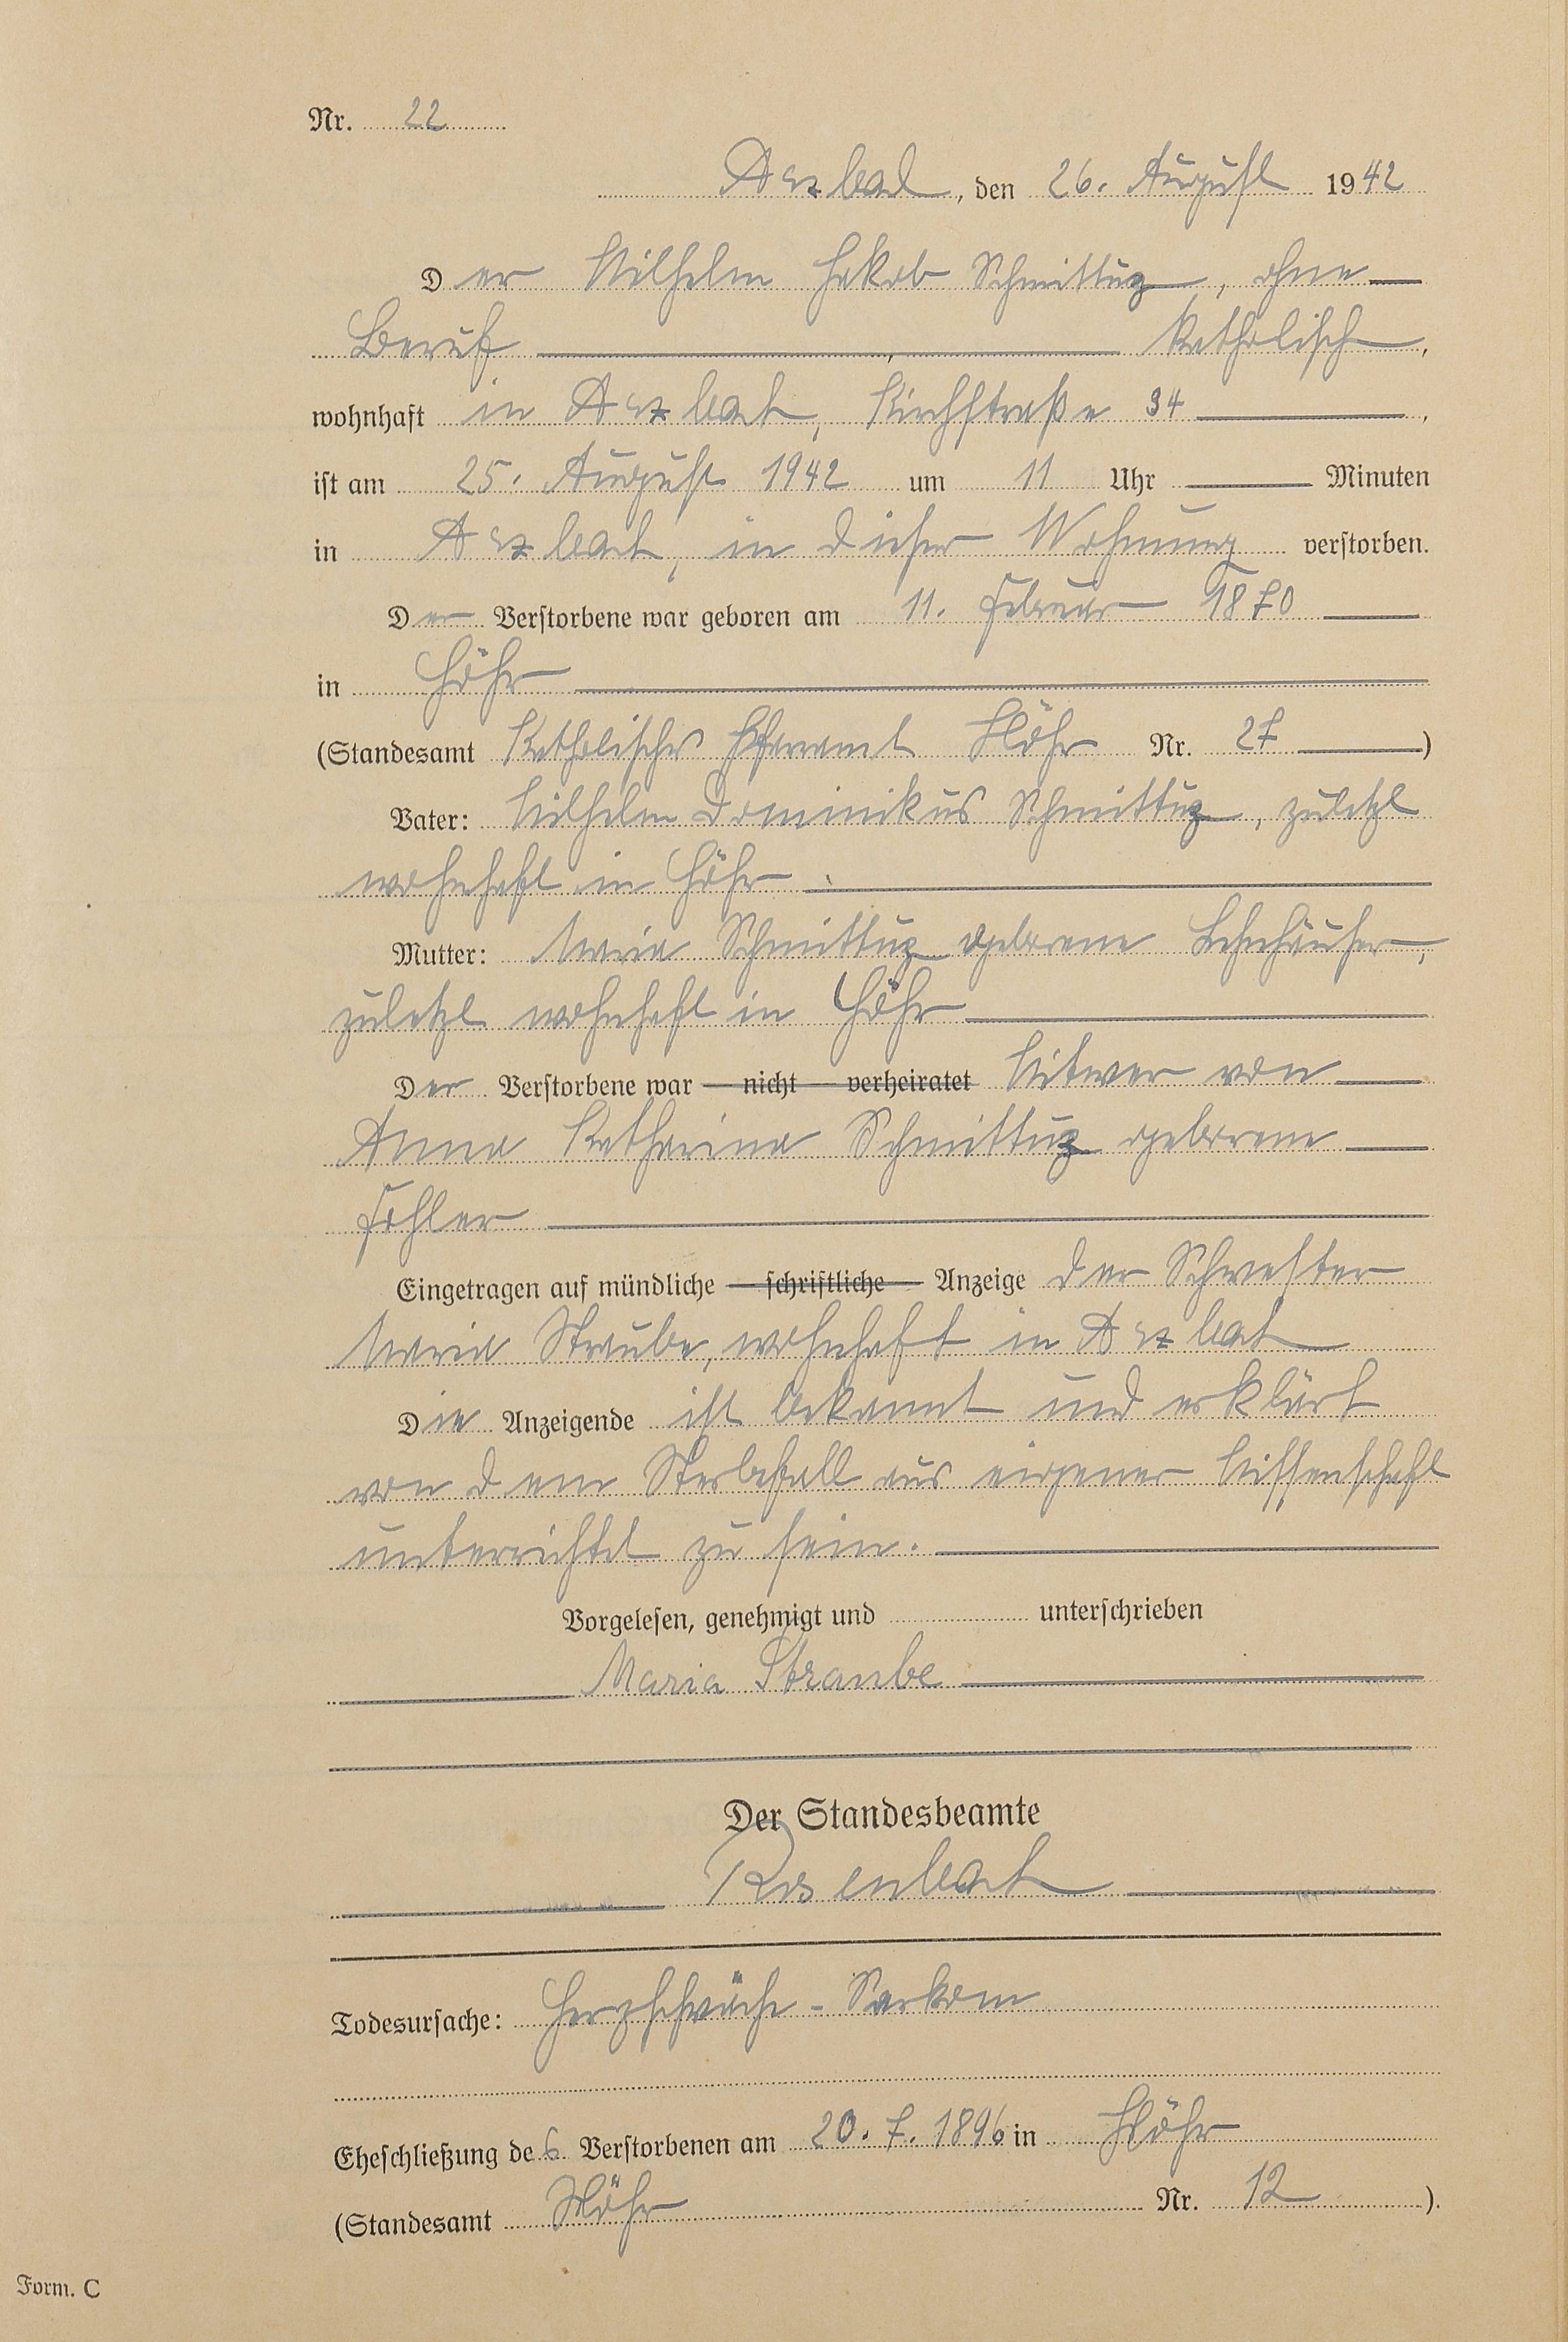 Nr. 22
Arzbach, den 26. August 1942
Der Wilhelm Jakob Schmittuz, ohne
Beruf, katholisch,
wohnhaft in Arzbach, Kirchstraße 34,
ist am 25. August 1942 um 11 Uhr Minuten
in Arzbach, in dieser Wohnung verstorben.
Der Verstorbene war geboren am 11. Februar 1870
in Höhr
(Standesamt Katholisches Pfarramt Höhr Nr. 27)
Vater: Wilhelm Dominikus Schmittuz, zuletzt
wohnhaft in Höhr.
Mutter: Maria Schmittuz geborene Lehnhäuser,
zuletzt wohnhaft in Höhr
Der Verstorbene war nicht verheiratet Witwer von
Anna Katharina Schmittuz geborene
Fohler
Eingetragen auf mündliche schriftliche Anzeige der Schwester
Maria Straube, wohnhaft in Arzbach
Die Anzeigende ist bekannt und erklärt
von dem Sterbefall aus eigener Wissenschaft
unterrichtet zu sein.
Vorgelesen, genehmigt und unterschrieben
Maria Straube
Der Standesbeamte
Rosenbach
Todesursache: Herzschwäche - Sarkom
Eheschließung des Verstorbenen am 20. 7. 1896 in Höhr
(Standesamt Höhr Nr. 12).
Form. C